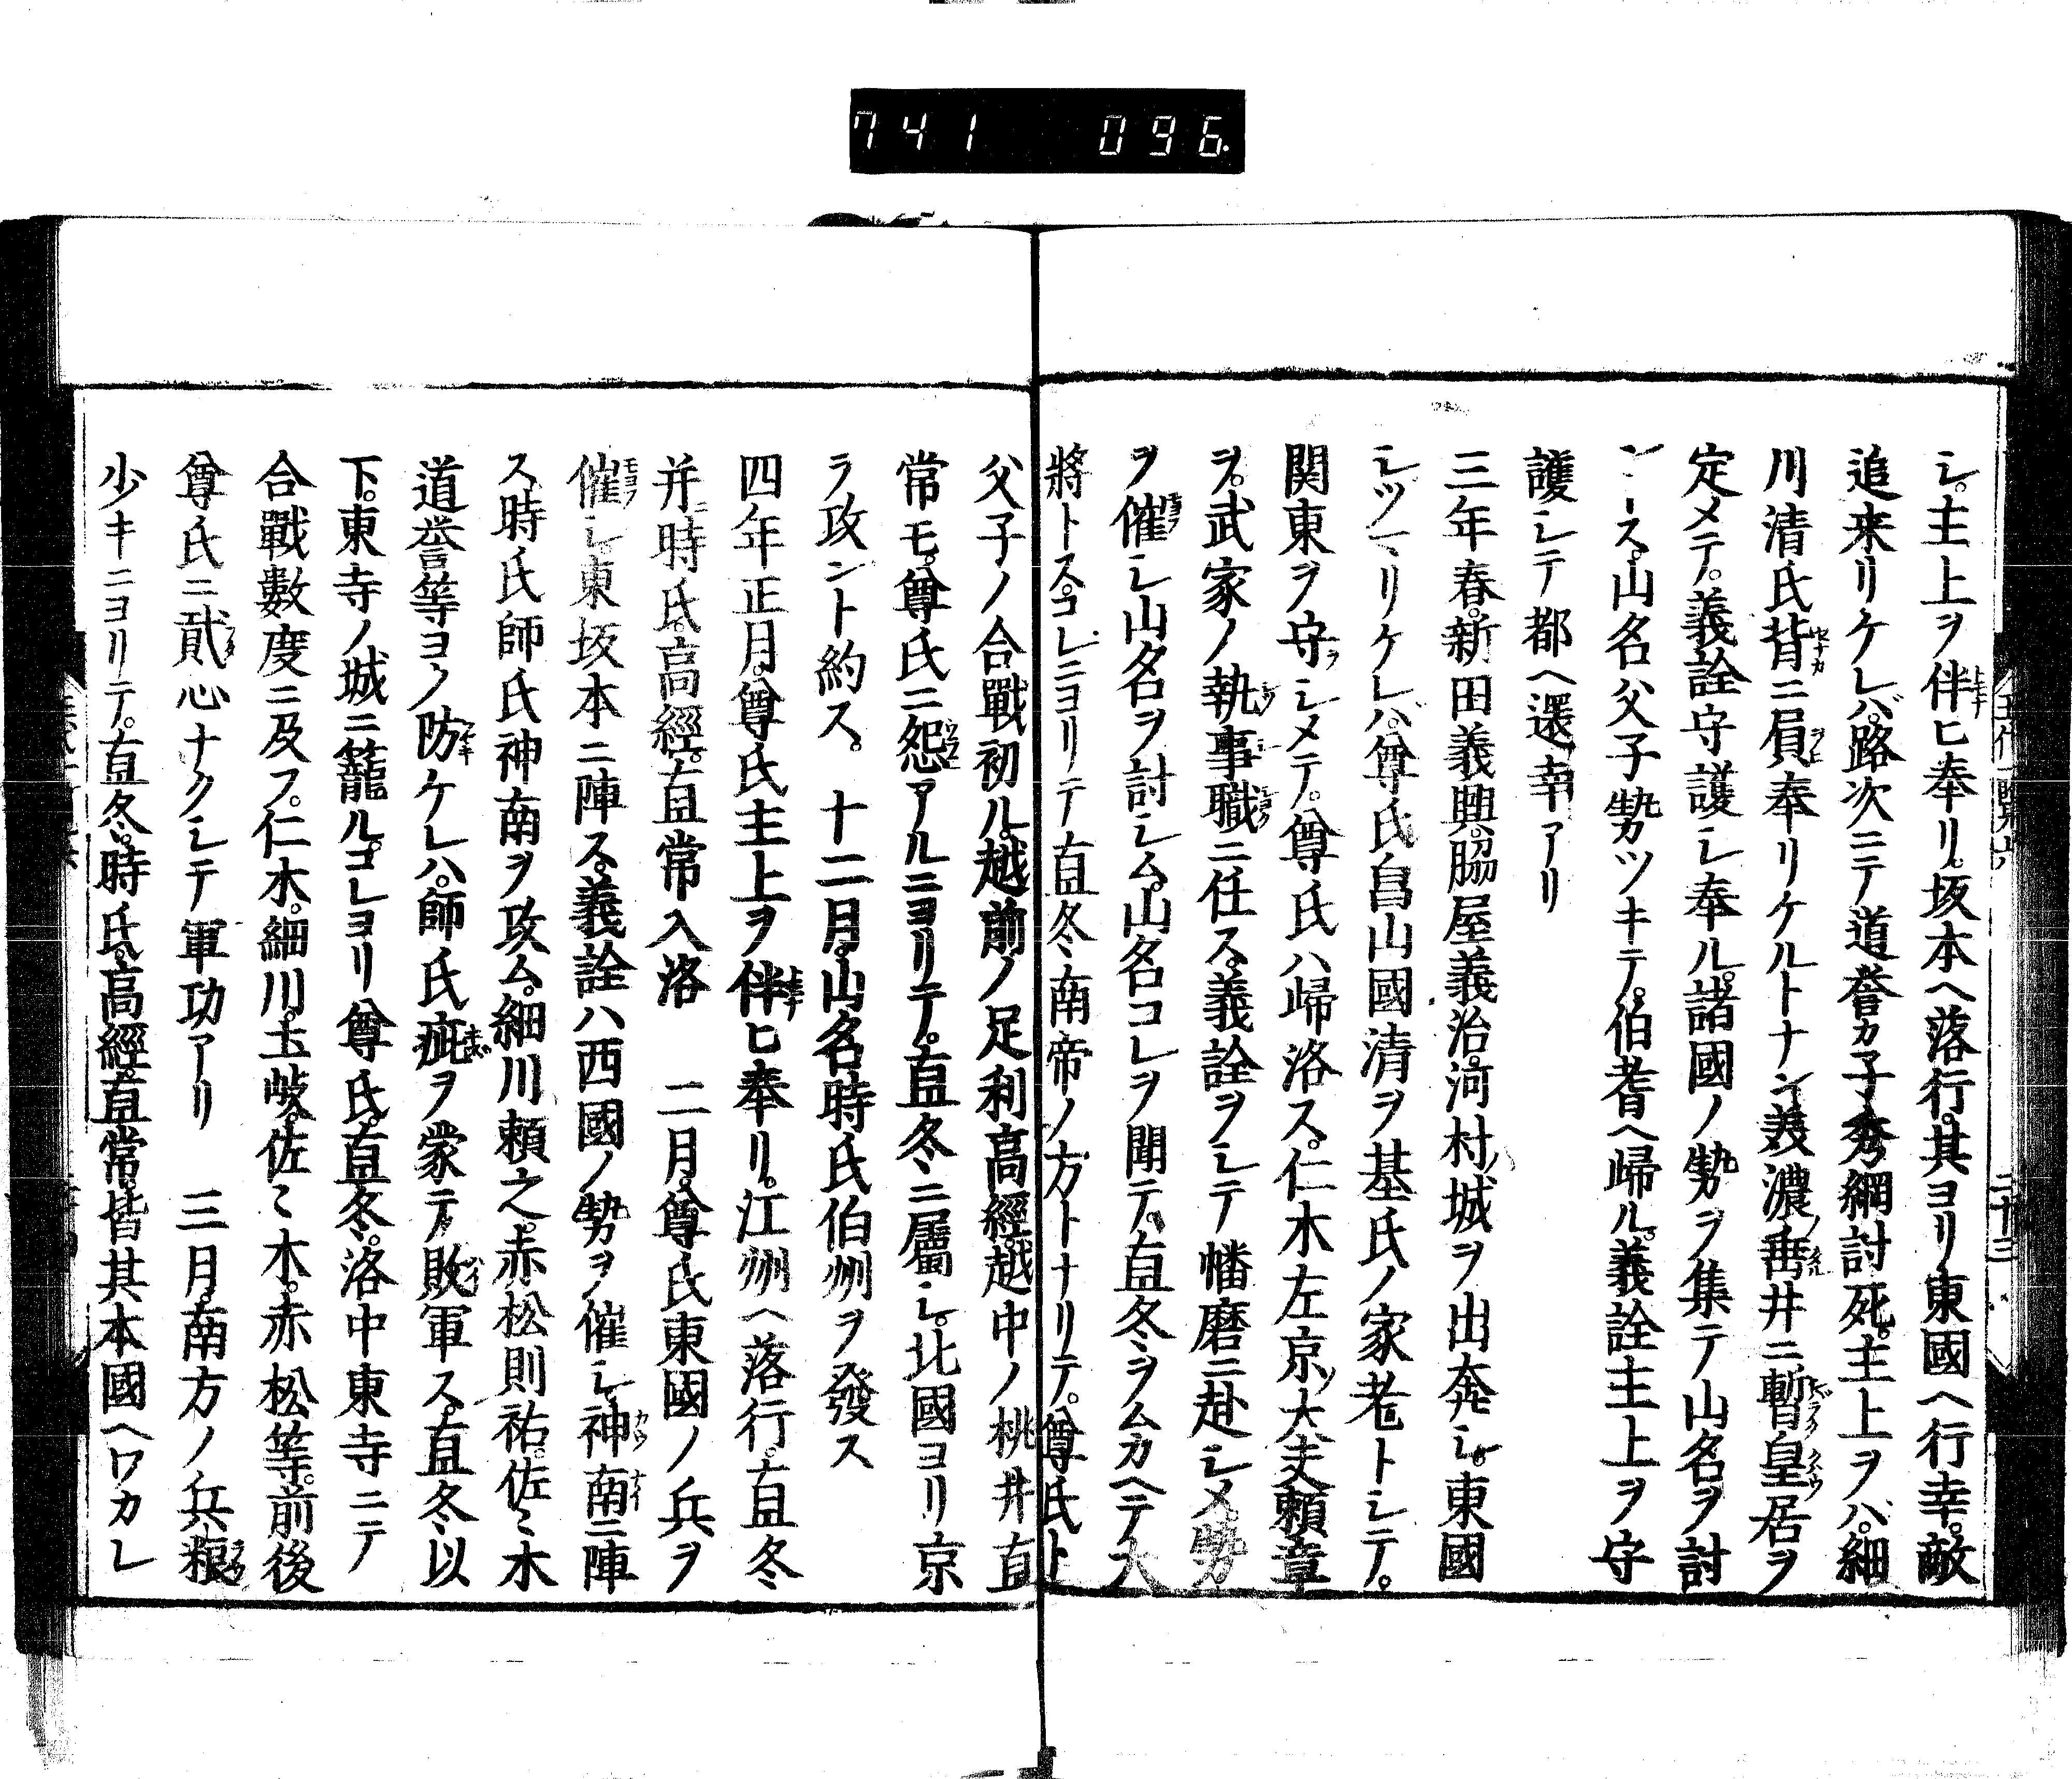 741 096
シ。主上ヲ伴ヒ奉リ。坂本ヘ落行。其ヨリ東國ヘ行幸。敵
追来リケレバ。路次ニテ道誉カ子秀綱討死。主上ヲバ。細
川清氏背ニ負奉リケルトナン。義濃ノ垂井ニ暫皇居ヲ
定メテ。義詮守護シ奉ル。諸國ノ勢ヲ集テ山名ヲ討
ントス。山名父子勢ツキテ。伯耆ヘ歸ル。義詮主上ヲ守
護シテ都ヘ還幸アリ
三年春。新田義興。脇屋義治。河村ノ城ヲ出奔シ。東國
シヅマリケレバ。尊氏畠山國清ヲ基氏ノ家老トシテ。
関東ヲ守ラシメテ。尊氏ハ歸洛ス。仁木左京ノ大夫頼章
ヲ。武家ノ執事職ニ任ス。義詮ヲシテ幡磨ニ赴シメ。勢
ヲ催シ山名ヲ討シム。山名コレヲ聞テ。直冬ヲムカヘテ大
將トス。コレニヨリテ直冬南帝ノ方トナリテ。尊氏ト
父子ノ合戰初ル。越前ノ足利高經。越中ノ桃井直
常モ。尊氏ニ怨アルニヨリテ。直冬ニ屬シ。北國ヨリ京
ヲ攻ント約ス。 十二月。山名時氏伯州ヲ發ス
四年正月。尊氏主上ヲ伴ヒ奉リ。江州ヘ落行。直冬
并ニ時氏。高經。直常入洛 二月。尊氏東國ノ兵ヲ
催シ。東坂本ニ陣ス。義詮ハ西國ノ勢ヲ催シ。神南ニ陣
ス。時氏師氏神南ヲ攻ム。細川頼之。赤松則祐。佐々木
道誉等ヨク防ケレハ。師氏疵ヲ蒙テ敗軍ス。直冬以
下。東寺ノ城ニ籠ル。コレヨリ尊氏。直冬。洛中東寺ニテ
合戰數度ニ及フ。仁木。細川。土岐。佐々木。赤松等。前後
尊氏ニ貮心ナクシテ軍功アリ 三月。南方ノ兵粮
少キニヨリテ。直冬。時氏。高經。直常。皆其本國ヘワカレ